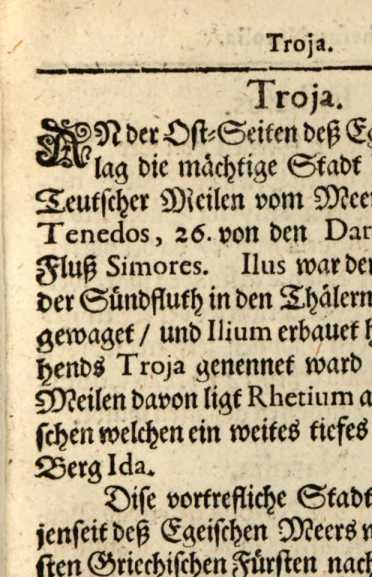 Troja.
Troja.
AN der Ost-Seiten deß
lag die mächtige Stadt
Teutscher Meilen vom
Tenedos, 26. von den
Fluß Simores. Ilus war
der Sündfluth in den Thälern
gewaget / und Ilium erbauet
hends Troja genennet ward
Meilen davon ligt Rhetium
schen welchen ein weites tiefes
Berg Ida.
Dise vortrefliche
jenseit deß Egeischen Meers
sten Griechischen Fürsten